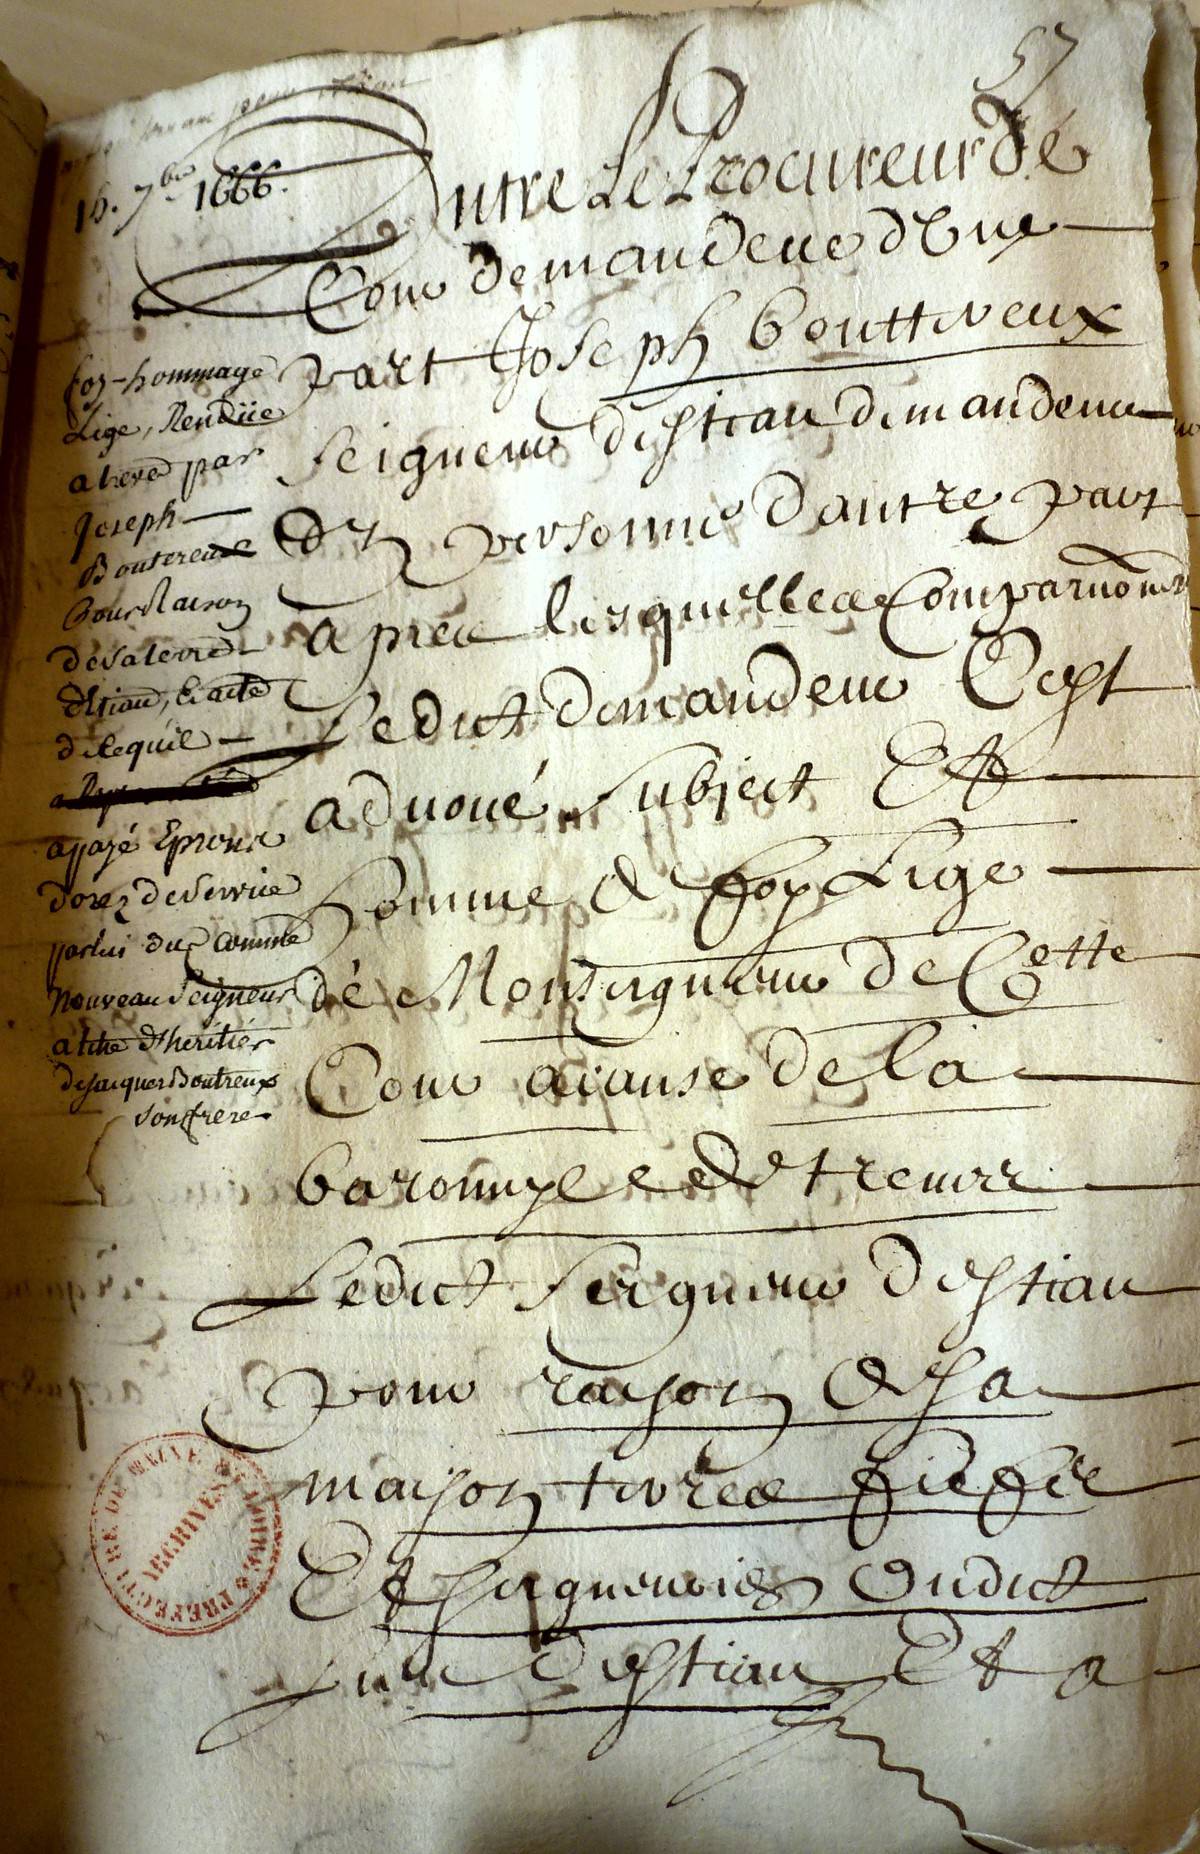 57
16. 7bre 1666.
Entre Le Procureur de
Cour demandeur d'Une
part Joseph bouttreux
seigneur destiau demandeur
En personne dautre part
apres lesquelles Comparu͠ons
Ledict demandeur C'est
advoué subject Et
homme de foy Lige
de Monseigneur de Cette
Cour a cause de la
baronnye de trenes
Ledict seigneur destiau
pour rayson de sa
mayson terres fiefz
Et seigneuries Dudict
lieu destiau Et a
foy-hommage
Lige, Rendüe
a treves par
Joseph
Boutereux
Pour Raison
de sa terre
d'Etiau, Et acte
de ce qu'il
a payé Eprons
dorez de Service
par lui dus comme
nouveau seigneur
a titre d'heritier
de Jacques Boutreux
son frere
PREFECTURE DE MAINE ET LOIRE
ARCHIVES